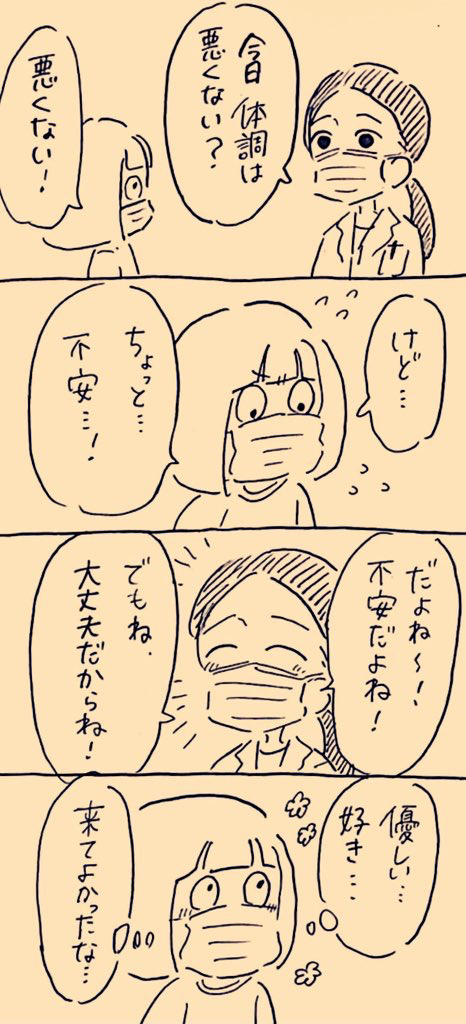 今日 体調は
悪くない？
悪くない！
けど…
ちょっと…
不安…！
だよね〜！
不安だよね！
でもね、
大丈夫だからね！
優しい…
好き…
来てよかったな…